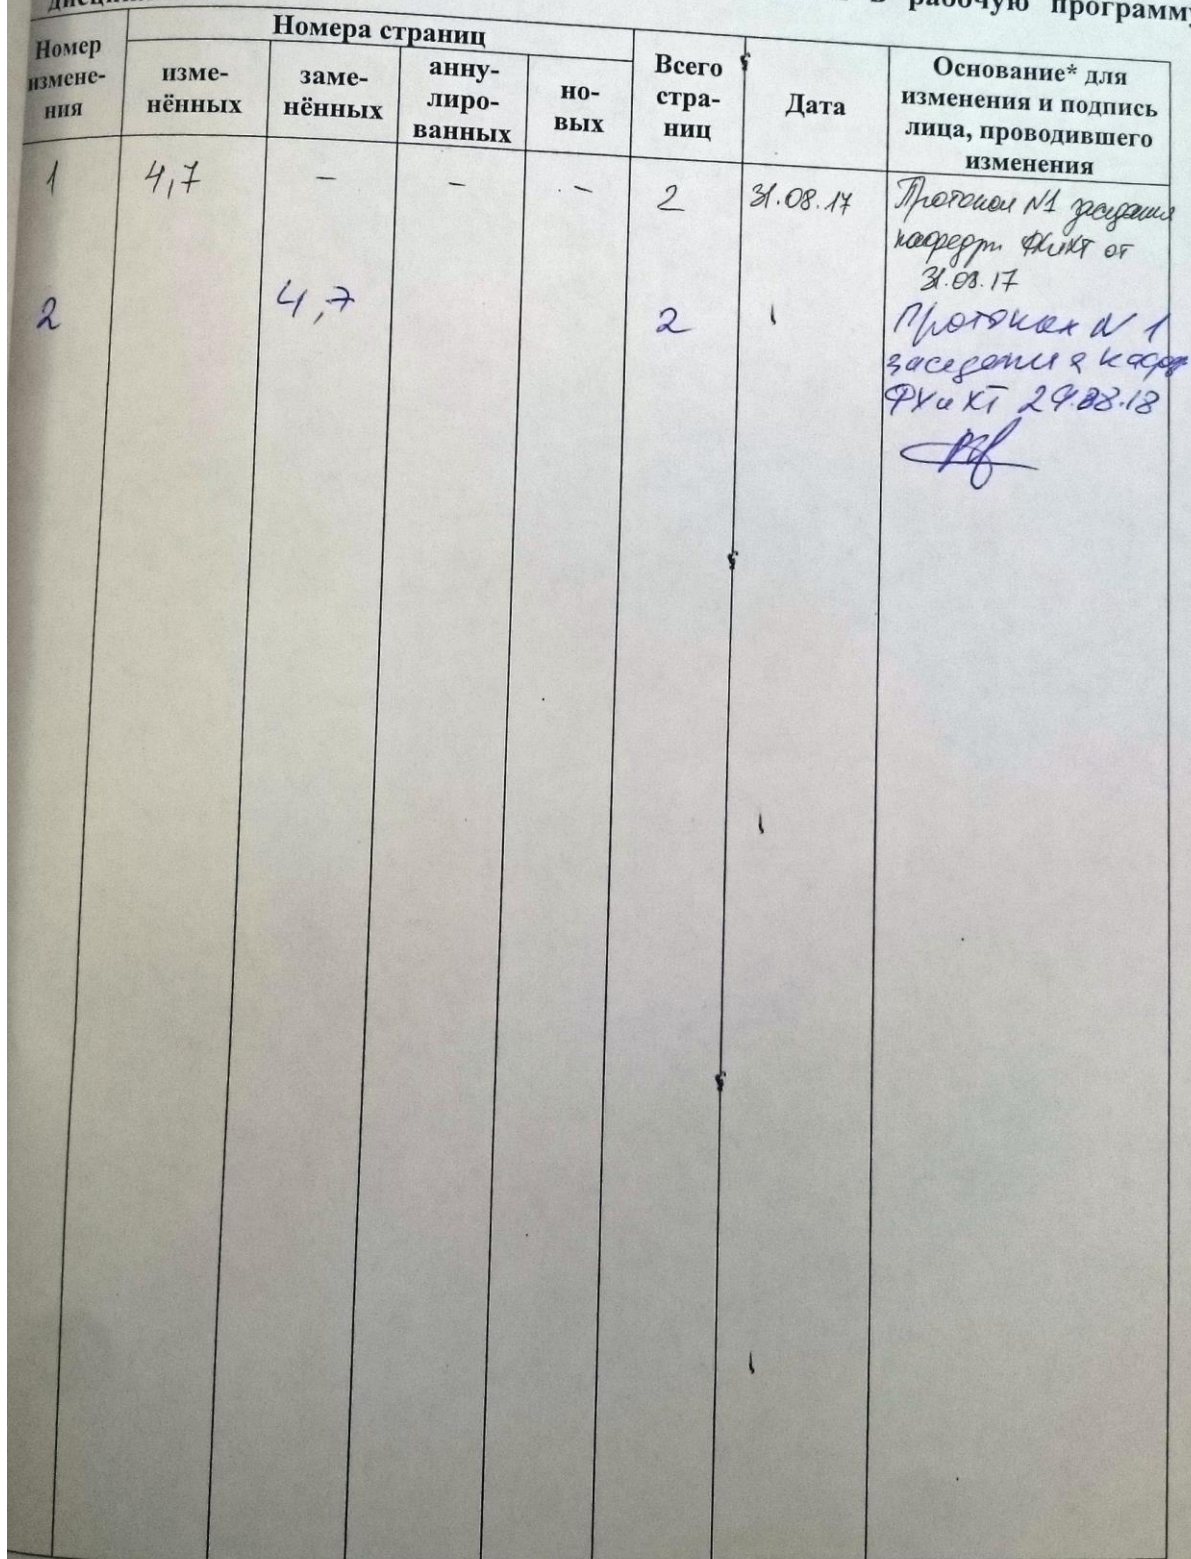 в рабочую программу
Номер измене- ния
Номера страниц
изме- нённых
заме- нённых
анну- лиро- ванных
но- вых
Всего стра- ниц
Дата
Основание* для
изменения и подпись
лица, проводившего
изменения
1 4,7 – – – 2 31.08.17 Протокол №1 заседания
кафедры ФХиХТ от
31.08.17
2 4,7 2 Протокол № 1
заседания кафедр
ФХиХТ 29.08.18